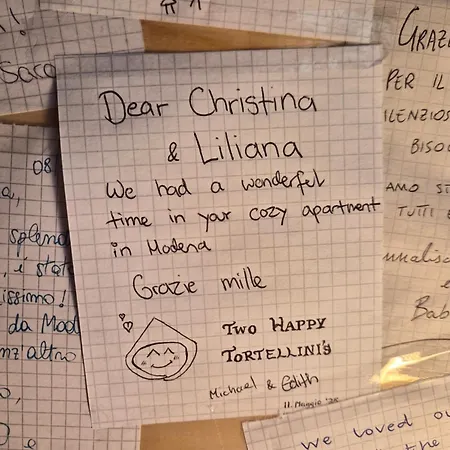 Dear Christina
& Liliana
We had a wonderful
time in your cozy apartment
in Modena
Grazie mille
TWO HAPPY
TORTELLINI'S
Michael & Edith
11. Maggio '25
Saco
08
splend
è stat
issimo!
da Mod
nz'altro
GRAZI
PER IL
ILENZIOS
BISO
AMO ST
TUTTI
nnalisa
e
Bab
we loved ou
the